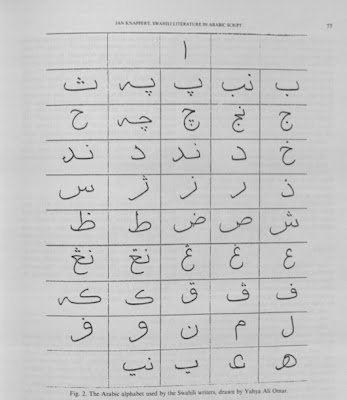 JAN KNAPPERT, SWAHILI LITERATURE IN ARABIC SCRIPT 77
ا
ب نب پ په ث
ج نج چ چه ح
خ د ند د ند
ذ ر ز ژ س
ش ص ض ط ظ
ع غ نغ
ف ڤ ق ک که
ل م ن و
ه ي ني
Fig. 2. The Arabic alphabet used by the Swahili writers, drawn by Yahya Ali Omar.